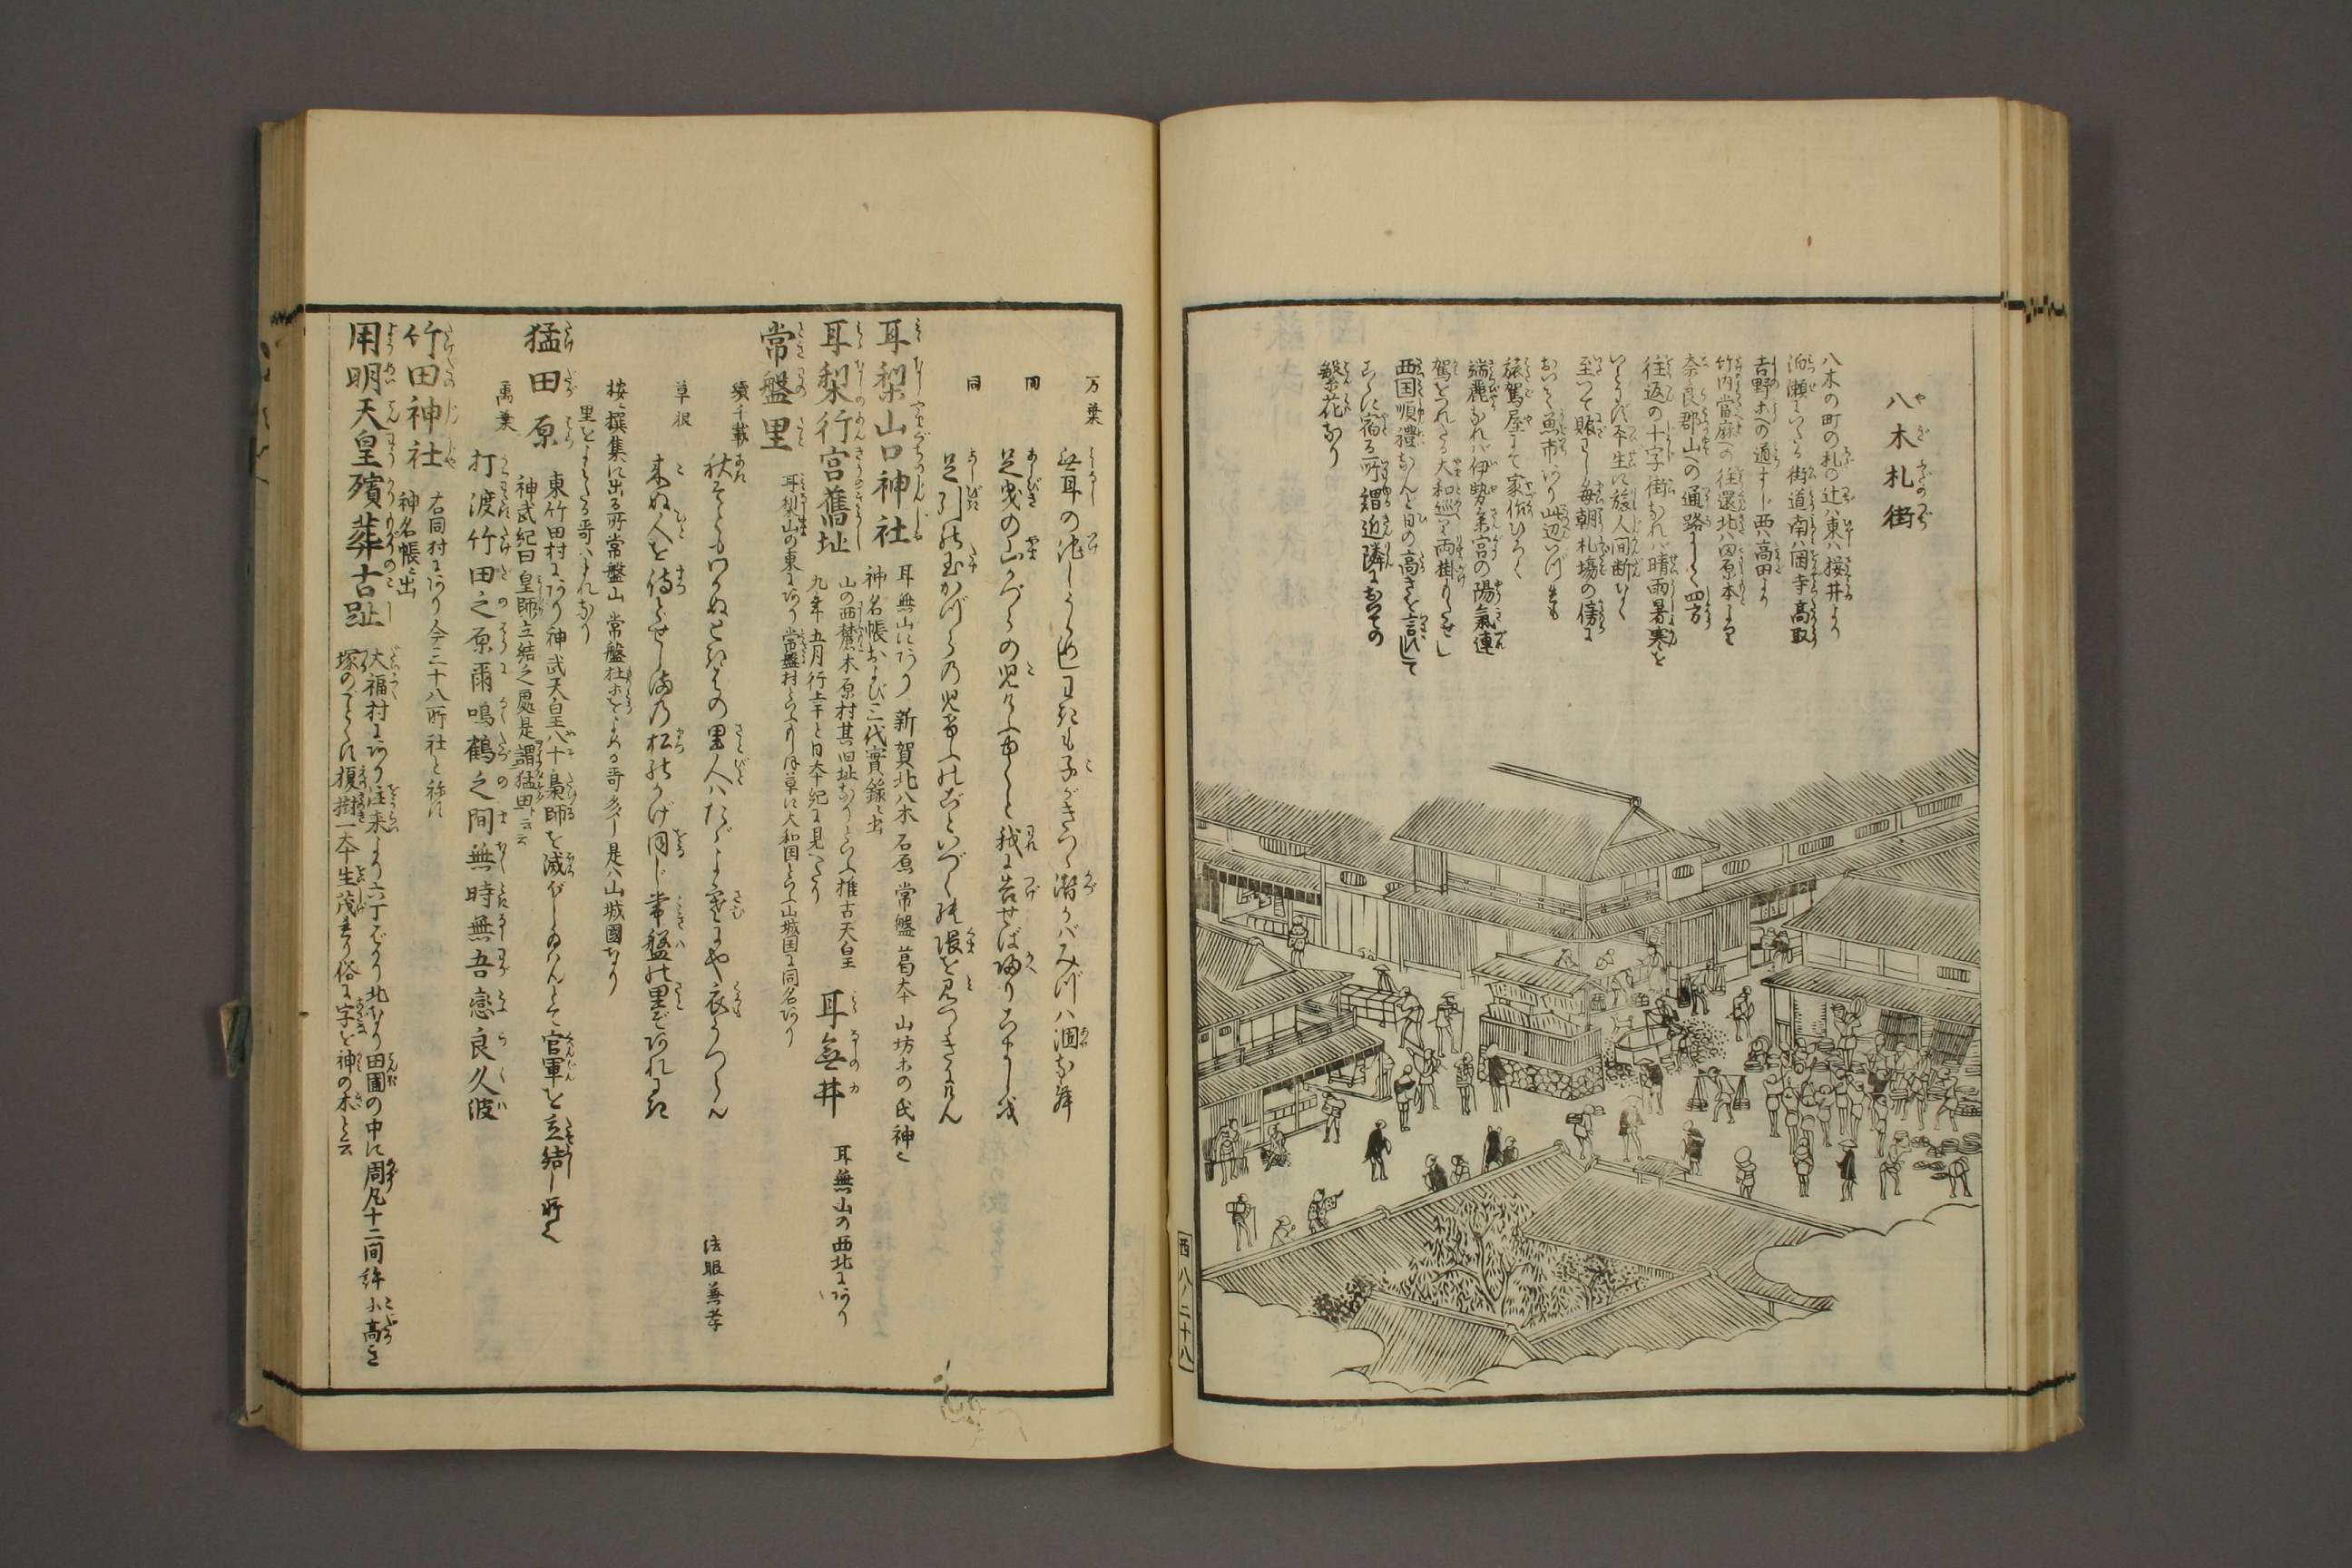 八木札街
八木の町の札の辻ハ東ハ桜井より
泊瀬にいたる街道南ハ岡寺高取
吉野ホへの通すじ西ハ高田より
竹内當麻への往還北ハ田原本より
奈良郡山への通路にして四方
往返の十字街なれバ晴雨暑寒を
いとはず平生に旅人間断なく
至つて賑はし毎朝札場の傍に
おいて魚市あり此辺いづれも
旅駕屋にて家作ひろく
端麗なれバ伊勢参宮の陽氣連
駕をつれたる大和巡りの両掛もたせし
西国順禮なんど日の高きを言ハずして
こゝに宿る所謂近隣におゐての
繁花なり
西八ノ二十八
万葉
無耳の池しうらめしわぎも子がきつゝ潜かバみづハ涸なむ
同
足曳の山かづらの児けふゆくと我に告せば𛂌りこましを
同
足引の玉かづらの児けふのごといづれの隈を見つゝきにけん
耳梨山口神社
耳無山にあり 新賀北八木石原常盤葛本山坊ホの氏神也
神名帳および三代實録ニ出
耳梨行宮舊址
山の西麓木原村其旧址なりといふ推古天皇
九年五月行幸と日本紀に見へたり
耳無井
耳無山の西北にあり
常盤里
耳梨山の東にあり常盤村といふ藻塩草に大和国といふ山城国に同名あり
續千載
秋きてもいろかぬときはの里人ハたゞよ寒にや衣うつらん
法眼兼孝
草根
来ぬ人を待とせし海の松のかげ同じ常盤の里であれにき
按ニ撰集に出る所常盤山常盤杜ホをよめる哥多し是ハ山城國なり
里とよみたる哥ハまれなり
猛田原
東竹田村にあり神武天皇八十梟師を滅がし給んとて官軍を立結し所也
神武紀曰皇師立結之處是謂猛田ト云云
萬葉
打渡竹田之原爾鳴鶴之間無時無吾戀良久波
竹田神社
右同村にあり今三十八所社と称す
神名帳ニ出
用明天皇殯葬古趾
大福村にあり往来より六丁ばかり北なり田圃の中に周凡十二间許小高き
塚のごとし榎樹一本生茂れり俗に字を神の木と云